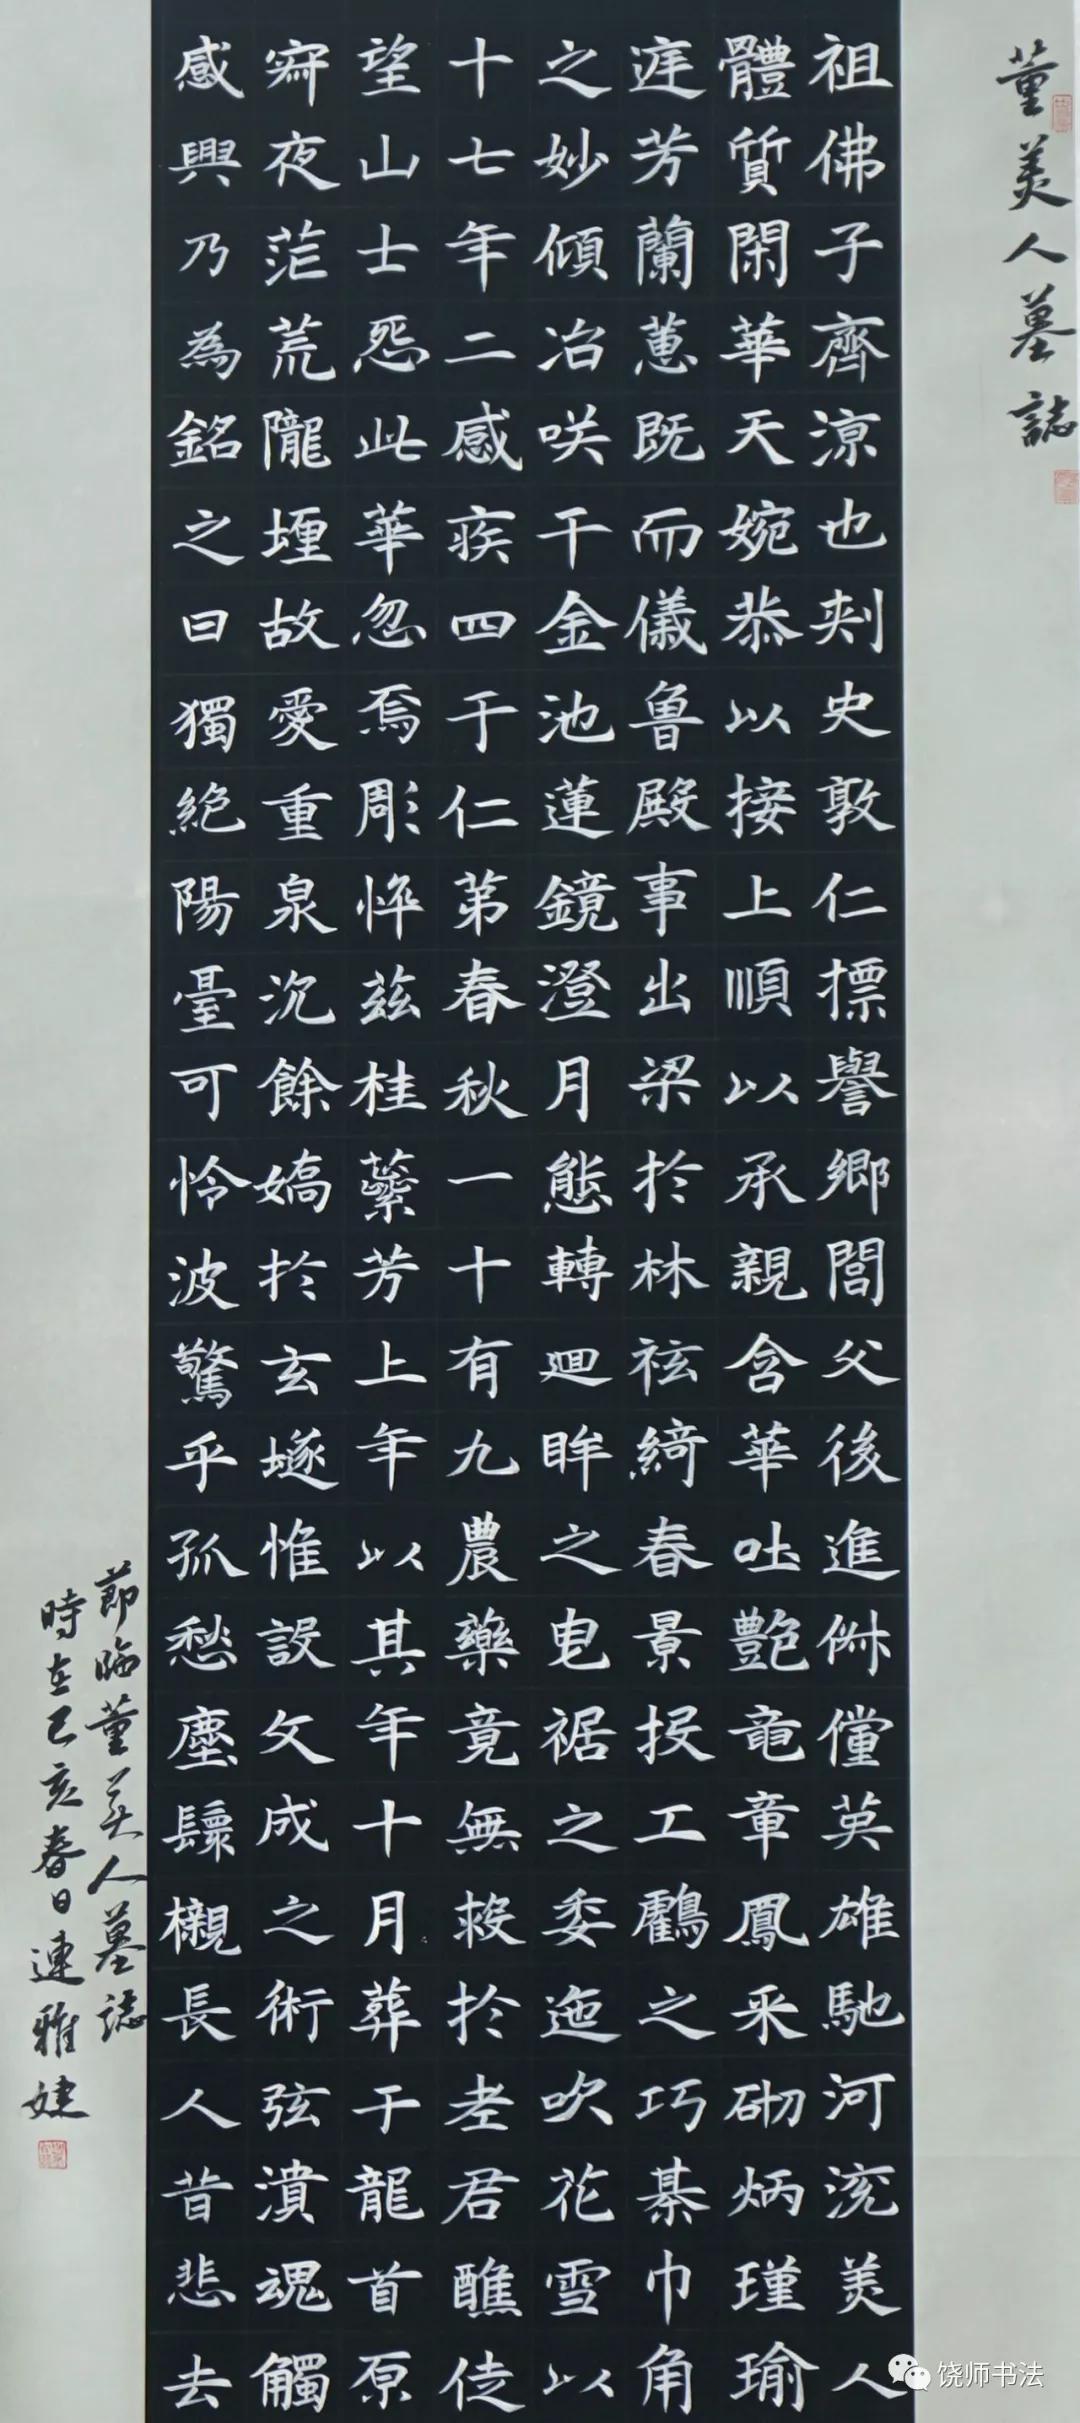 董美人墓誌
祖佛子齊涼也刺史敦仁摽譽鄉閭父後進俶儻英雄馳河浣美人
體質閑華天婉恭以接上順以承親含華吐艷竜章鳳采砌炳瑾瑜
庭芳蘭蕙既而儀魯殿事出梁於林袨綺春景投工鸖之巧棊巾角
之妙傾冶咲千金池蓮鏡澄月態轉迴眸之电裾之委迤吹花雪以
十七年二感疾四于仁第春秋一十有九農藥竟無救於老君醮徒
望山士怨此華忽焉彫悴茲桂蘂芳上年以其年十月葬于龍首原
寂夜茫荒隴堙故愛重泉沉餘嬌於玄墜惟設文成之術弦潰魂觸
感興乃為銘之曰獨絕陽臺可怜波驚乎孤愁塵髹櫬長人昔悲去
節臨董美人墓誌
時在己亥春日連雅婕
饶师书法